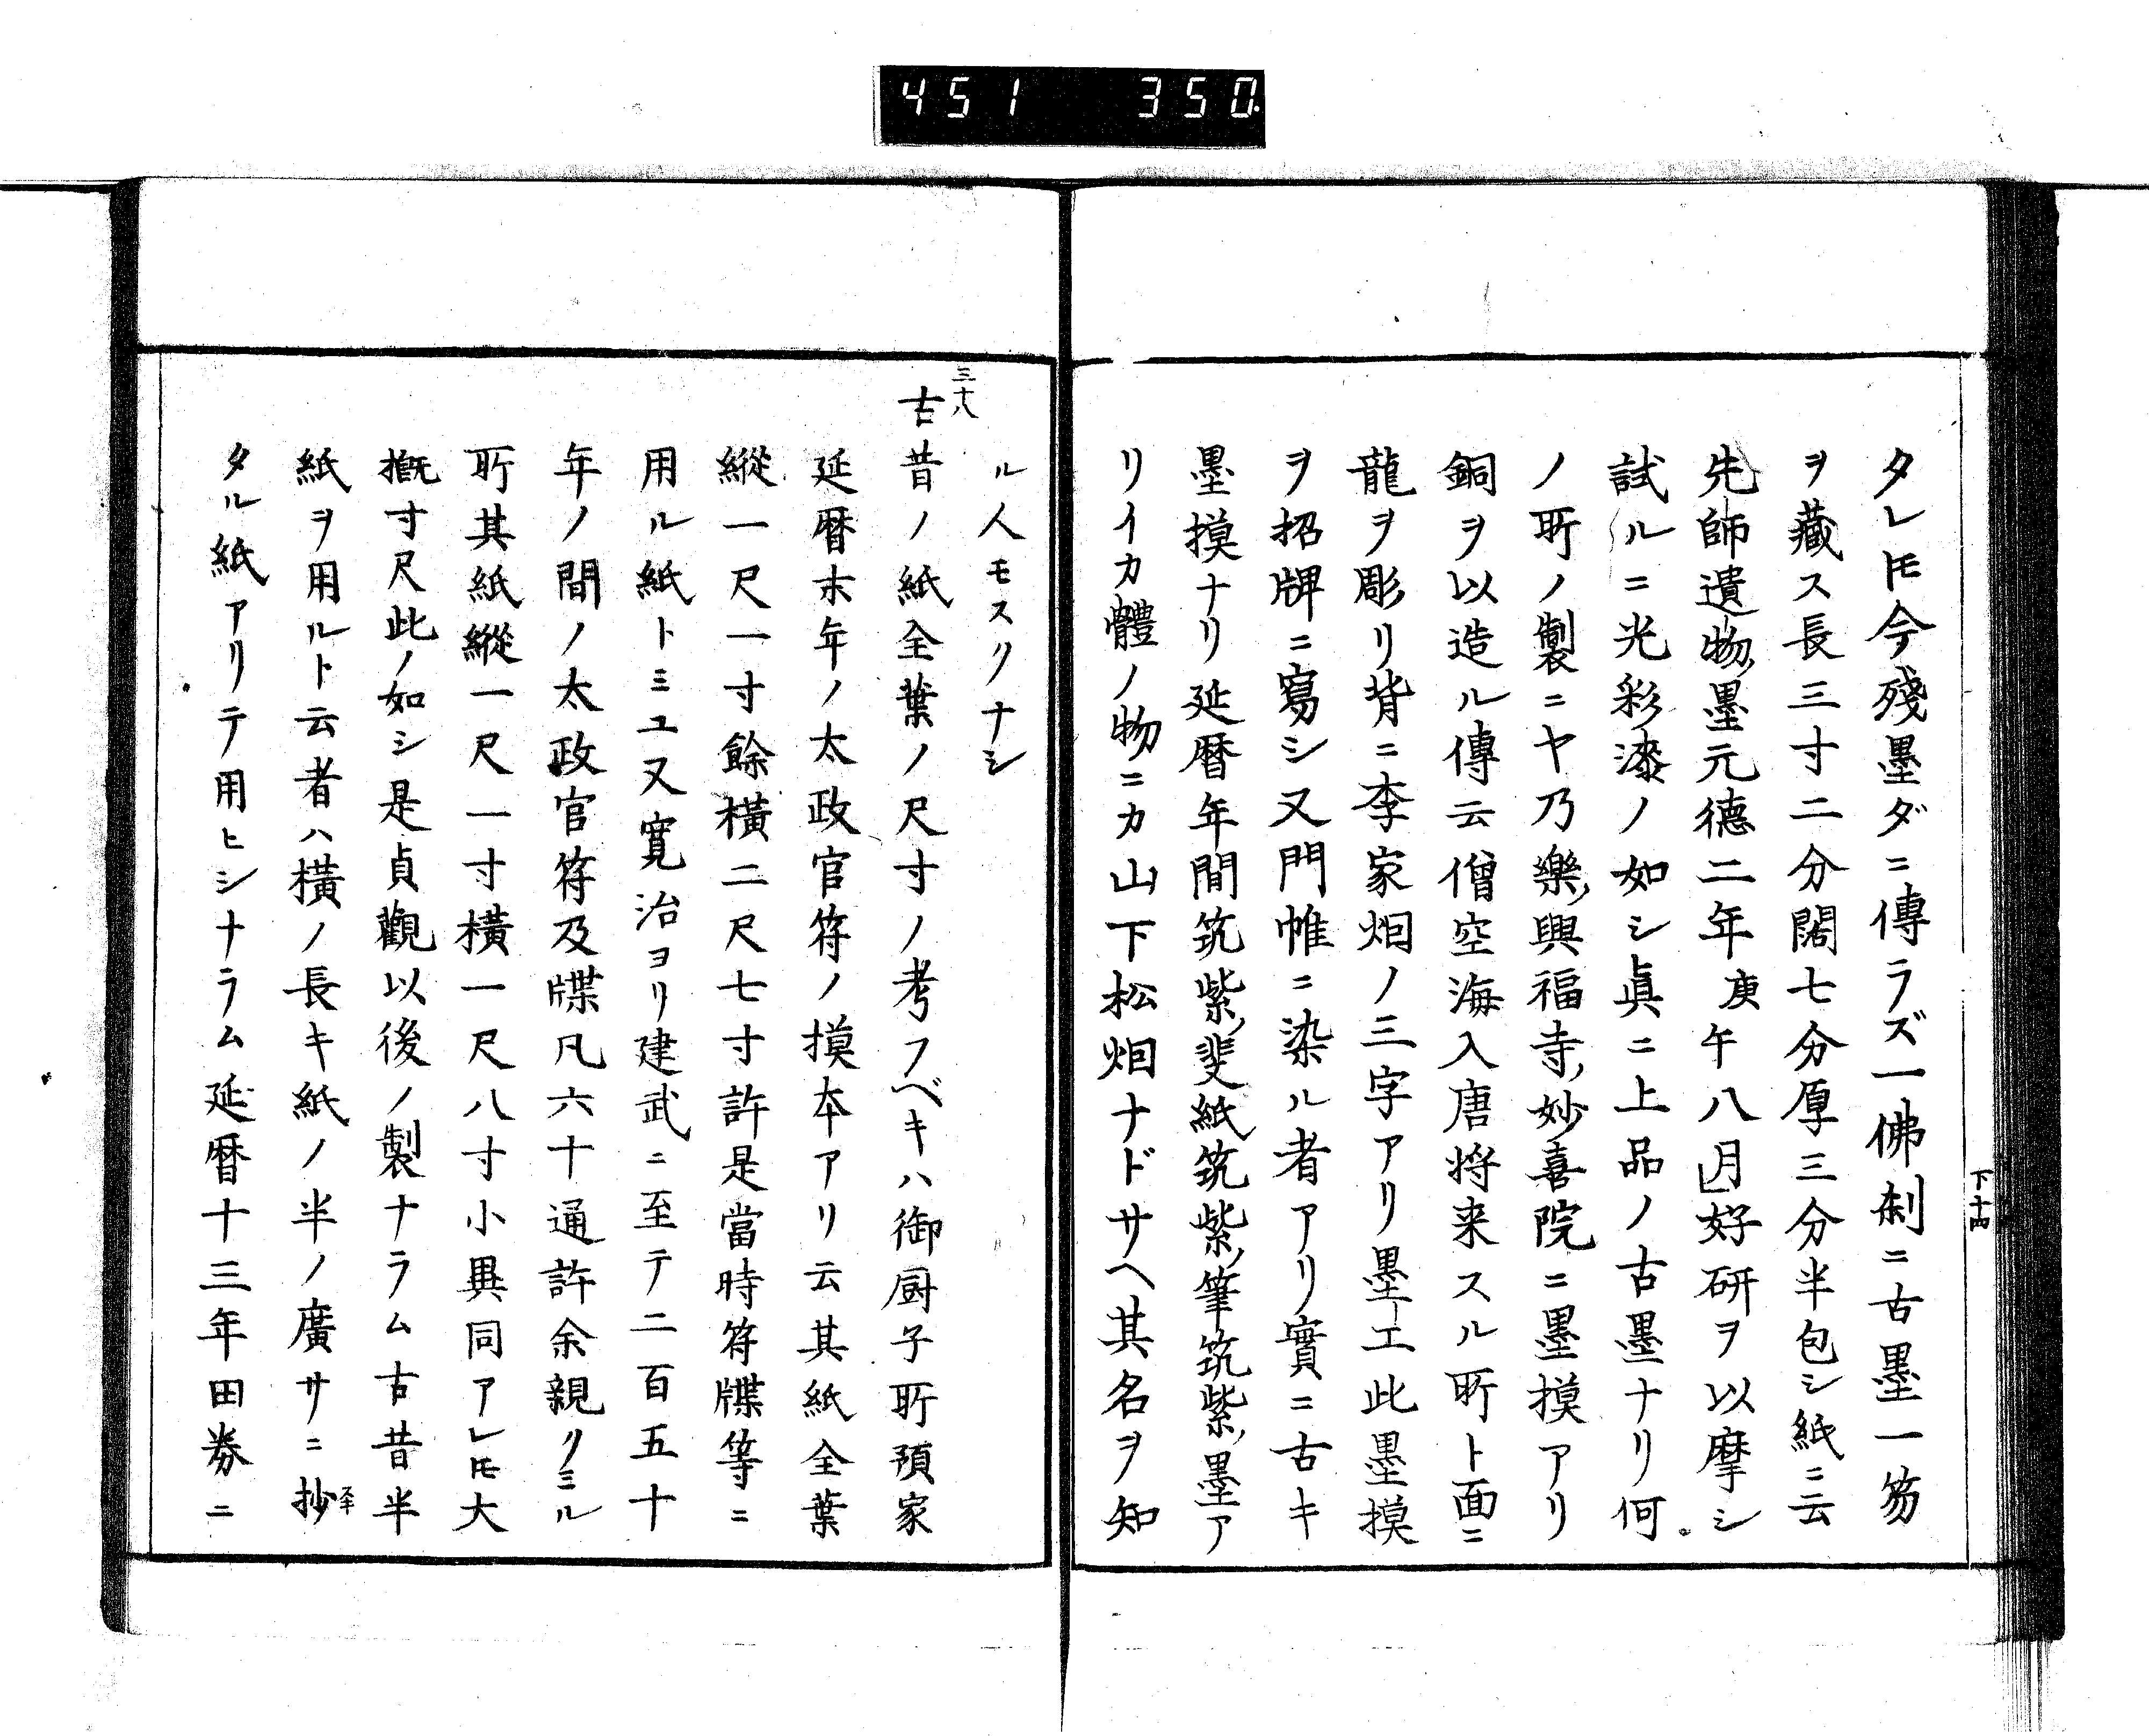 451 350
下十四
タレ𪜈今殘墨ダニ傳ラズ一佛刹ニ古墨一笏
ヲ藏ス長三寸二分闊七分厚三分半包シ紙ニ云
先師遺物墨元德二年庚午八月」好研ヲ以摩シ
試ルニ光彩漆ノ如シ眞ニ上品ノ古墨ナリ何
ノ所ノ製ニヤ乃樂興福寺妙喜院ニ墨摸アリ
銅ヲ以造ル傳云僧空海入唐將来スル所ト面ニ
龍ヲ彫リ背ニ李家烟ノ三字アリ墨工此墨摸
ヲ招牌ニ寫シ又門帷ニ染ル者アリ實ニ古キ
墨摸ナリ延暦年間筑紫斐紙筑紫筆筑紫墨ア
リイカ體ノ物ニカ山下松烟ナドサヘ其名ヲ知
ル人モスクナシ
三十八
古昔ノ紙全葉ノ尺寸ノ考フベキハ御厨子所預家
延暦末年ノ太政官符ノ摸本アリ云其紙全葉
縱一尺一寸餘橫二尺七寸許是當時符牒等ニ
用ル紙トミユ又寛治ヨリ建武ニ至テ二百五十
年ノ間ノ太政官符及牒凡六十通許余親クミル
所其紙縱一尺一寸橫一尺八寸小異同アレ𪜈大
概寸尺此ノ如シ是貞觀以後ノ製ナラム古昔半
紙ヲ用ルト云者ハ橫ノ長キ紙ノ半ノ廣サニ抄
タル紙アリテ用ヒシナラム延暦十三年田券ニ